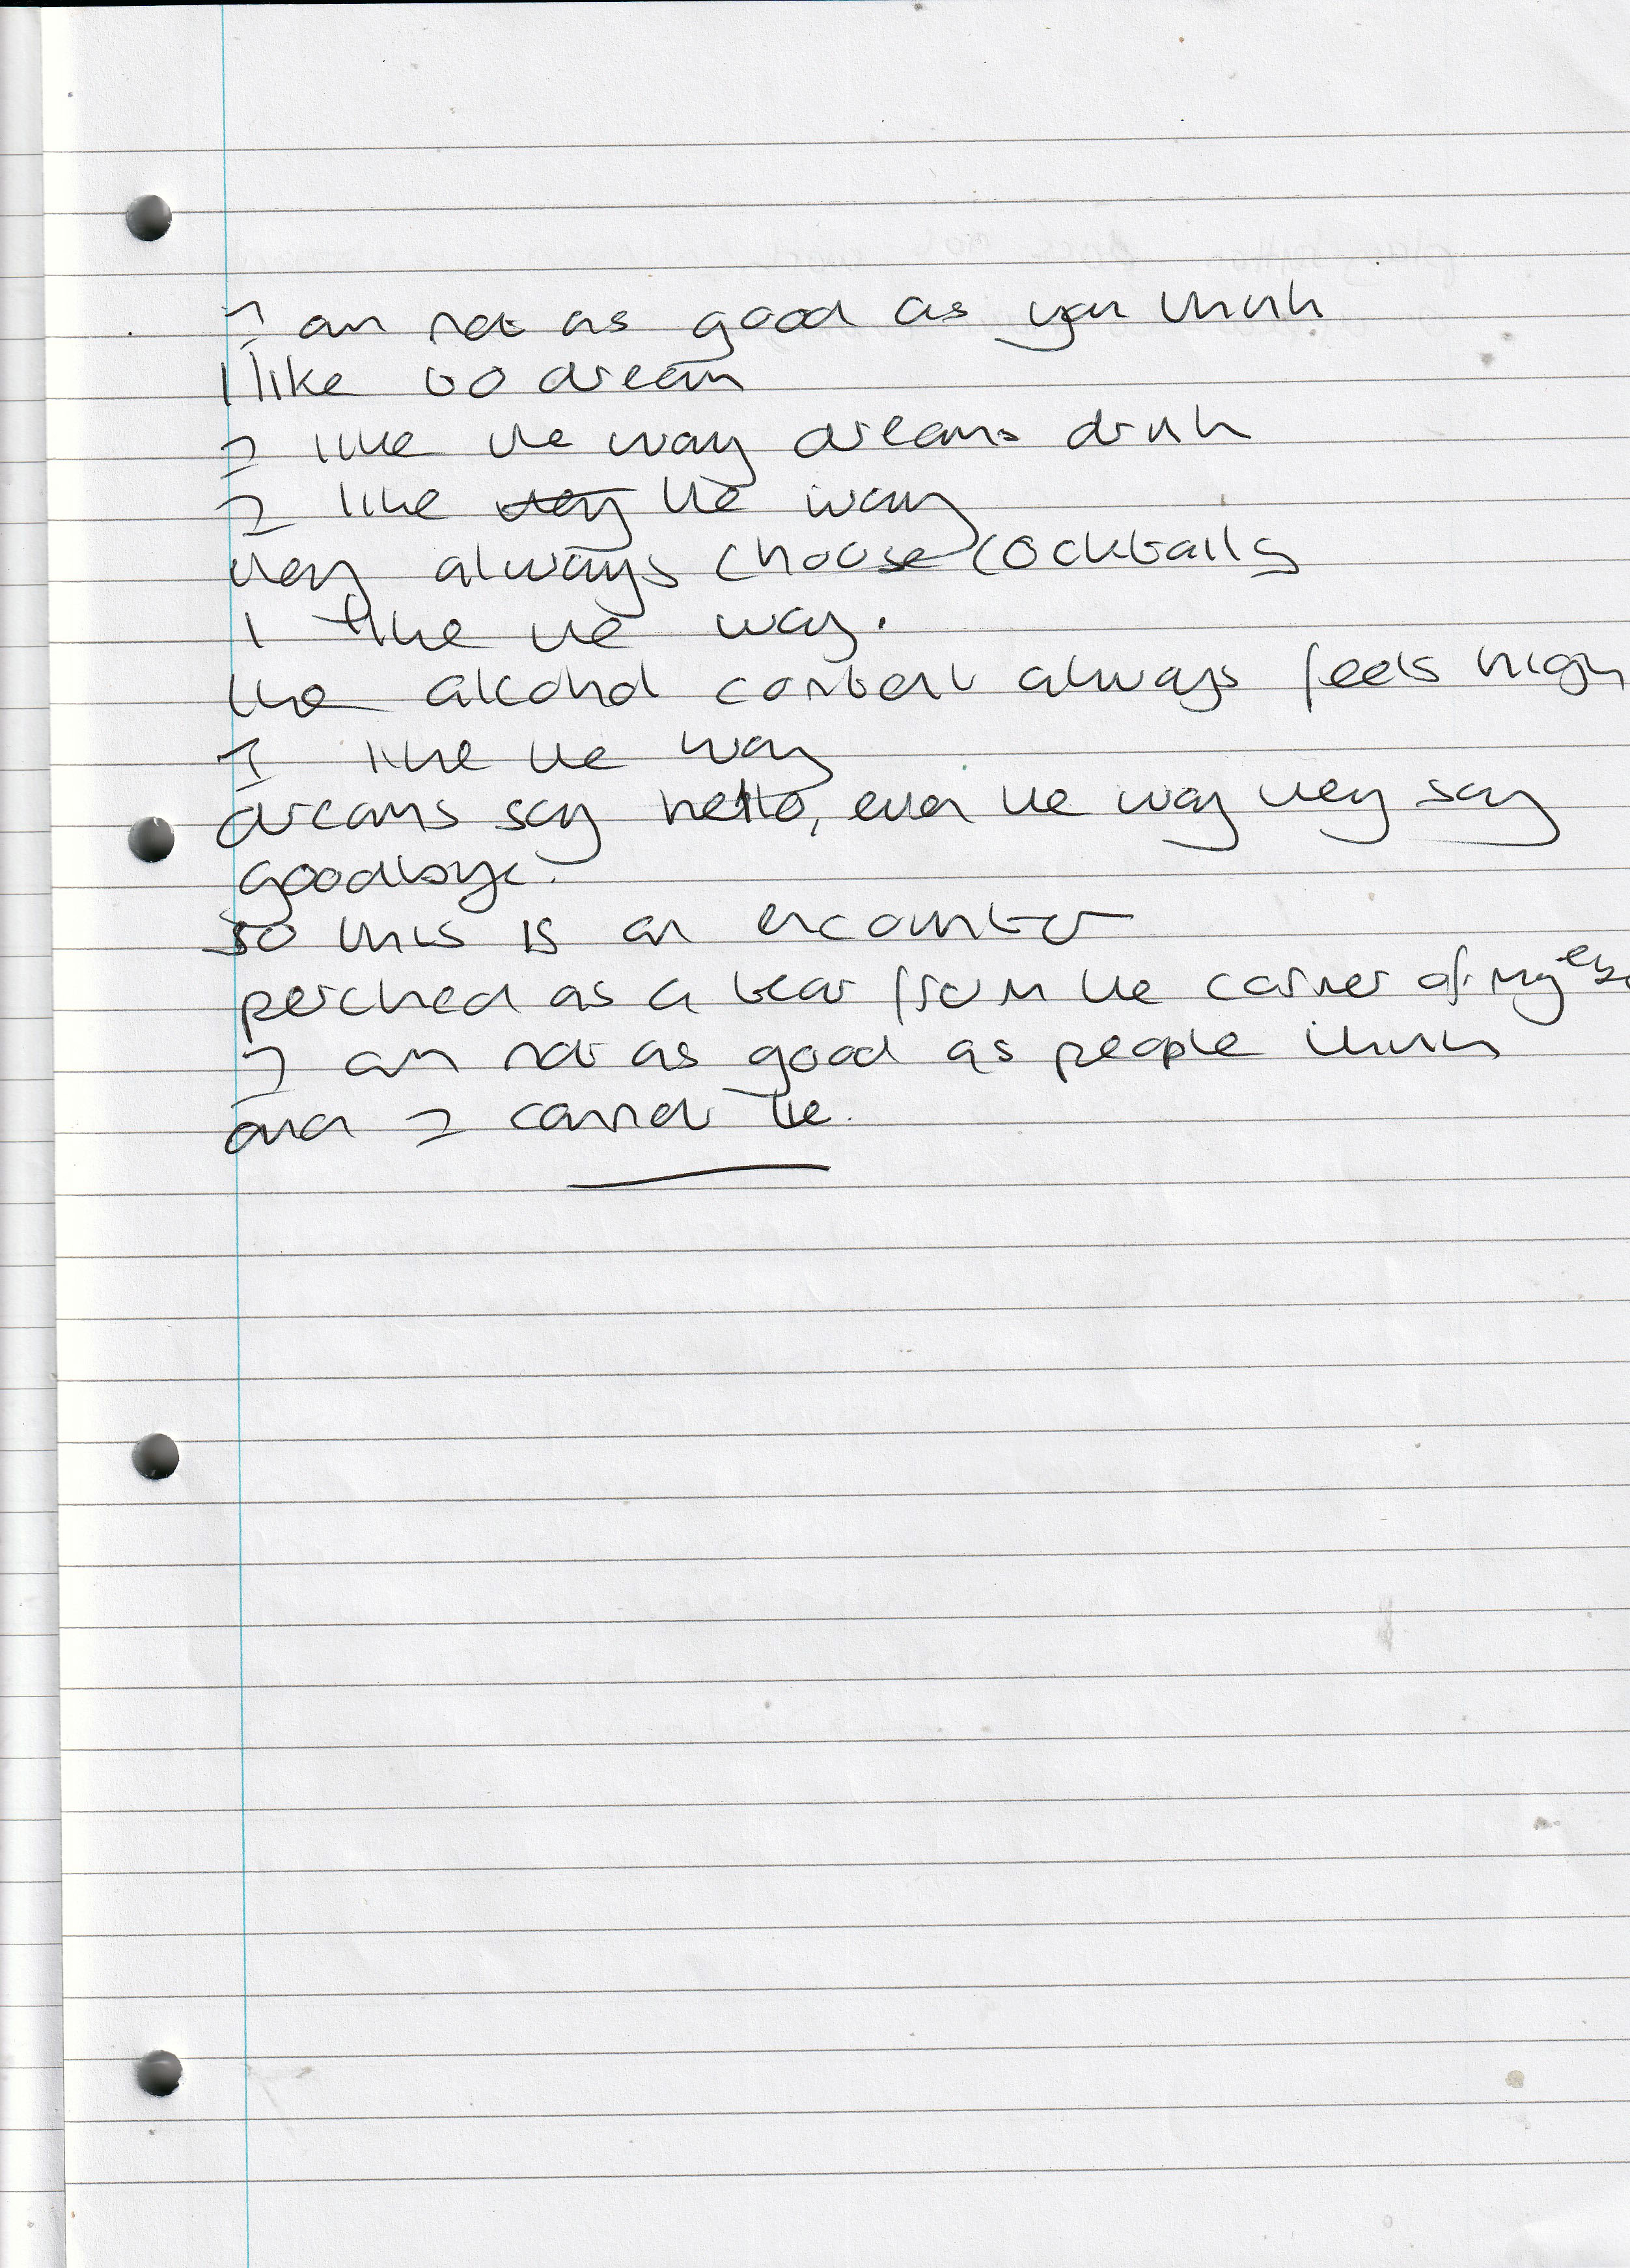 I am not as good as you think
I like to dream
I like the way dreams drink
I like they the way
they always choose cocktails
I like the way.
the alcohol content always feels high
I like the way
dreams say hello, even the way they say
goodbye.
so this is an encounter
perched as a tear from the corner of my eye
I am not as good as people think
and I cannot lie.